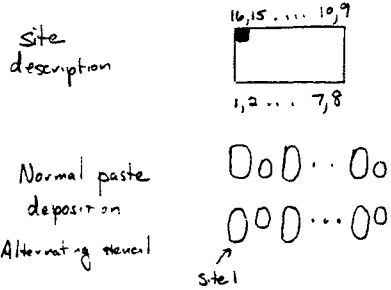 16,15 .... 10,9
site
description
1,2 ... 7,8
Normal paste
deposition
Alternating stencil
site 1